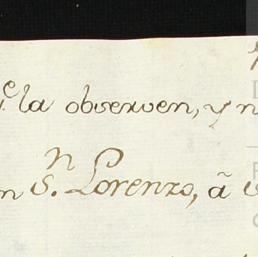 la observen, y
S.n Lorenzo, ã